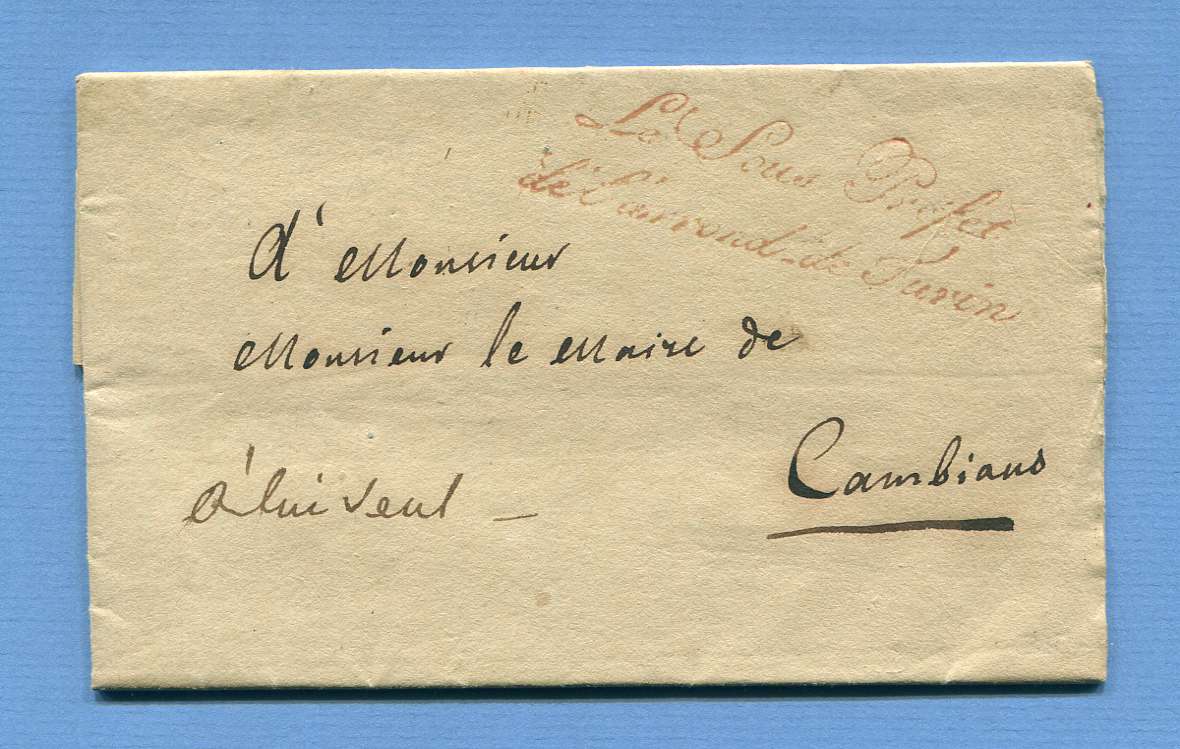 Le Sous Préfet
de l'arrond. de Turin
A Monsieur
Monsieur le Maire de
Cambiano
à lui seul —